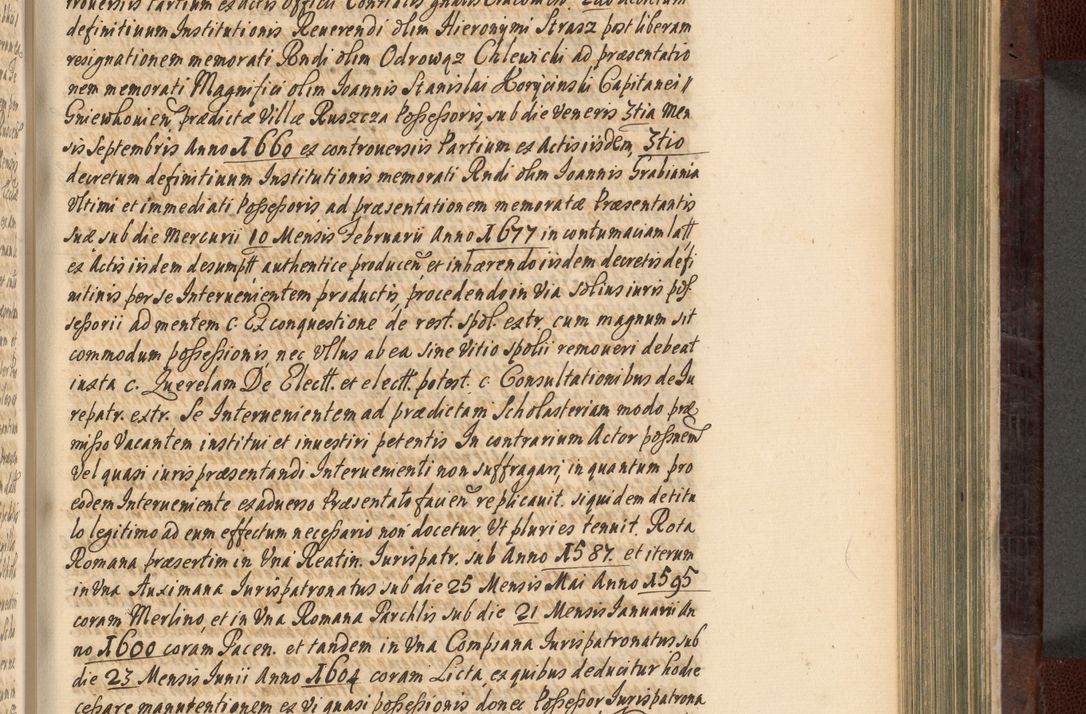 trouersiis Partium ex actis Officii Conrictis gnalis Cracouien. 2do decretum
definitiuum Institutionis Reuerendi olim Hieronymi Strasz post liberam
resignationem memorati Rndi olim Odrowąz Chlewicki ad præsentatio
nem memorati Magnifici olim Joannis Stanislai Korycinski Capitanei
Gniewkouien prædictæ Villæ Ruszcza Possessoris, sub die Veneris 3tia Men
sis Septembris Anno 1660 ex controuersiis Partium ex Actis iisdem, 3tio
decretum definitiuum Institutionis memorati Rndi olim Joannis Grabiania
Vltimi et immediati Possessoris ad præsentationem memoratæ Præsentantis
suæ sub die Mercurii 10 Mensis Februarii Anno 1677 in contumaciam latt
ex Actis iisdem desumptt authentice producen et inhærendo iisdem decretis defi
nitiuis per se Interuenientem productis, procedendo in Via solius iuris pos
sessorii ad mentem c. Ex conquestione de rest. spol. extr. cum magnum sit
commodum possessionis, nec Vllus ab ea sine Vitio spolii remoueri debeat
iuxta c. Querelam De Electt. et electt. potest. c. Consultationibus de Ju
repatr. extr. Se Interuenientem ad prædictam Scholasteriam modo præ
misso Vacantem institui et inuestiri petentis In contrarium Actor possnem
Vel quasi iuris præsentandi Interuenienti non suffragari, in quantum pro
eodem Interueniente ex aduerso Præsentato fauien replicauit. siquidem de titu
lo legitimo ad eum effectum necessario non docetur Vt pluries tenuit. Rota
Romana præsertim in Vna Reatin. Jurispatr. sub Anno 1587. et iterum
in Vna Auximana Jurispatronatus sub die 25 Mensis Mai Anno 1595
coram Merlino, et in Vna Romana Parchlis sub die 21 Mensis Januarii An
no 1600 coram Pacen. et tandem in Vna Compsana Jurispatronatus sub
die 23 Mensis Junii Anno 1604 coram Licta, ex quibus deducitur hodie
cessare manutentionem ex Vi quasi possessionis donec Possessor Jurispatrona